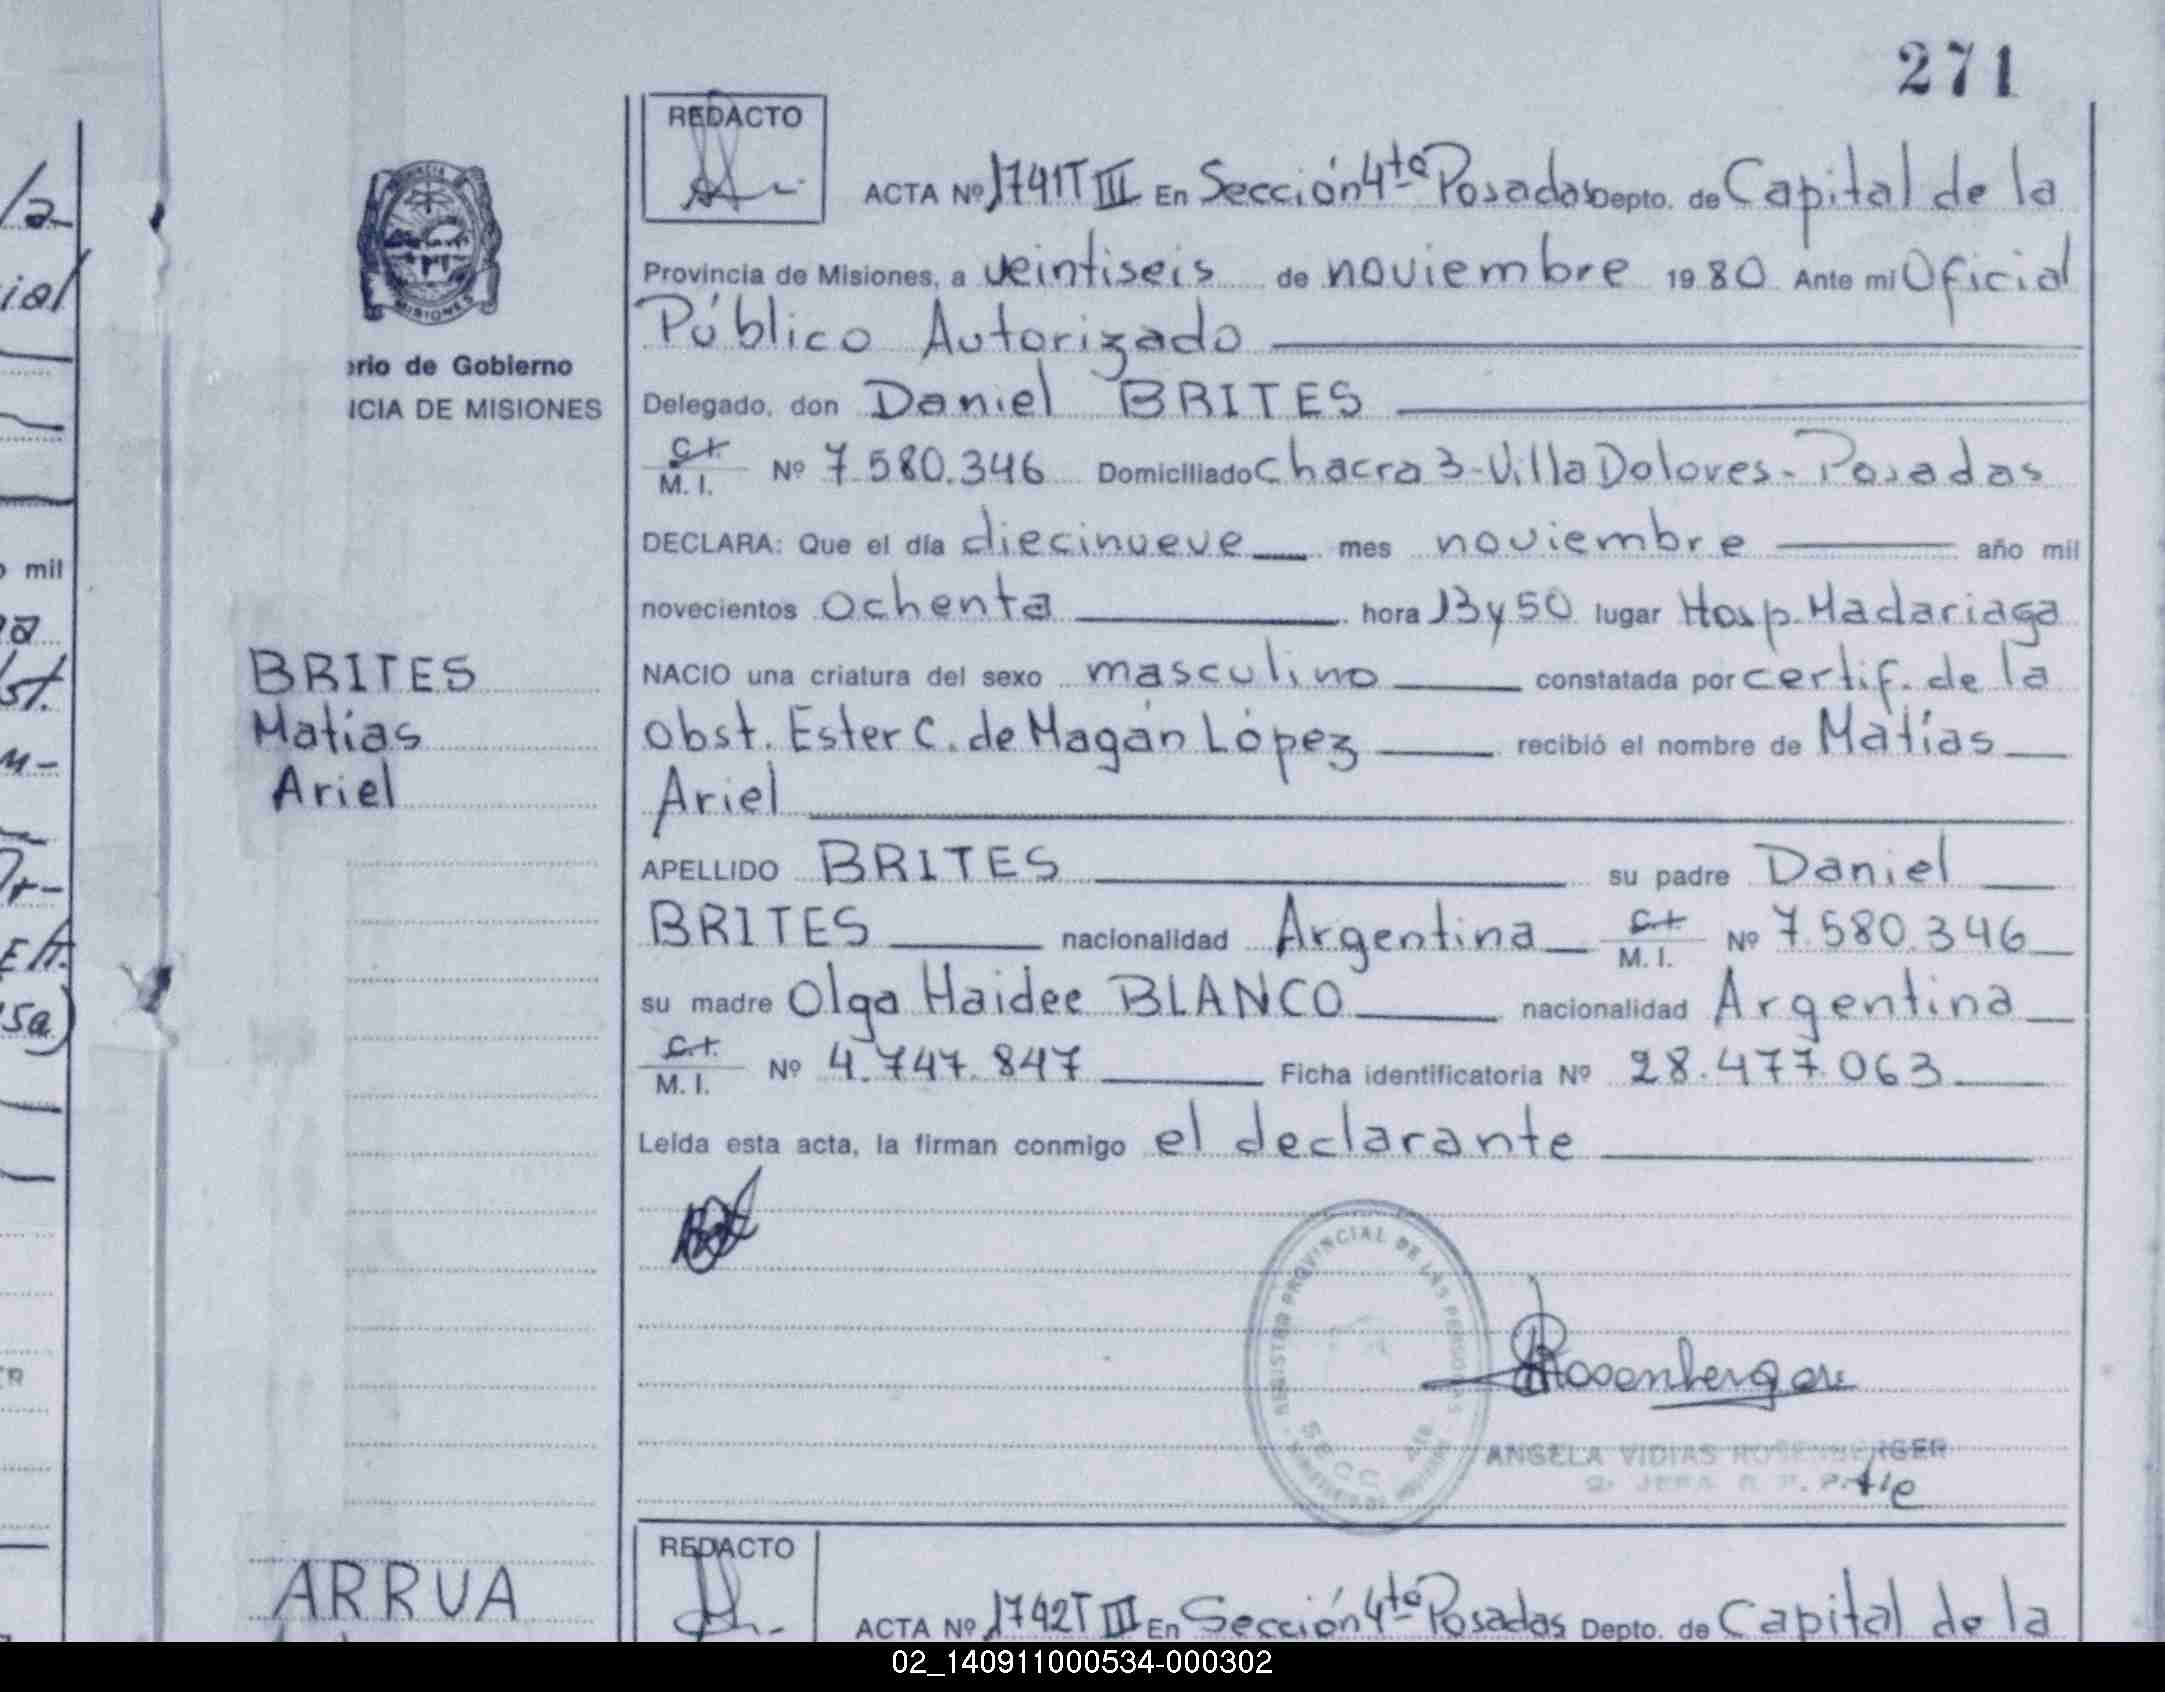 271
REDACTO
ACTA Nº 1741 T III En Sección 4ta Posadas Depto. de Capital de la
Provincia de Misiones, a veintiseis de noviembre 1980 Ante mi Oficial
Público Autorizado
erio de Gobierno
ICIA DE MISIONES
MISIONES
Delegado, don Daniel BRITES
C.I.
M. I. Nº 7.580.346 Domiciliado Chacra 3 - Villa Dolores - Posadas
DECLARA: Que el día diecinueve mes noviembre año mil
novecientos ochenta hora 13 y 50 lugar Hosp. Madariaga
BRITES
Matías
Ariel
NACIO una criatura del sexo masculino constatada por certif. de la
Obst. Ester C. de Magán López recibió el nombre de Matías
Ariel
APELLIDO BRITES su padre Daniel
BRITES nacionalidad Argentina C.I.
M. I. Nº 7.580.346
su madre Olga Haidee BLANCO nacionalidad Argentina
C.I.
M. I. Nº 4.747.847 Ficha identificatoria Nº 28.477.063
Leída esta acta, la firman conmigo el declarante
REGISTRO PROVINCIAL DE LAS PERSONAS
SECC 4ta
Rosenberger
ANGELA VIDIAS ROSENBERGER
JEFA R. P.
REDACTO
ARRUA
ACTA Nº 1742 T III En Sección 4ta Posadas Depto. de Capital de la
/a
ial
o mil
st.
sa)
02_140911000534-000302